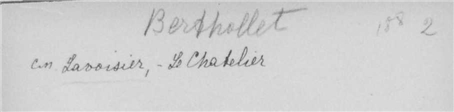 Berthollet 158 2
см. Lavoisier, - Le Chatelier